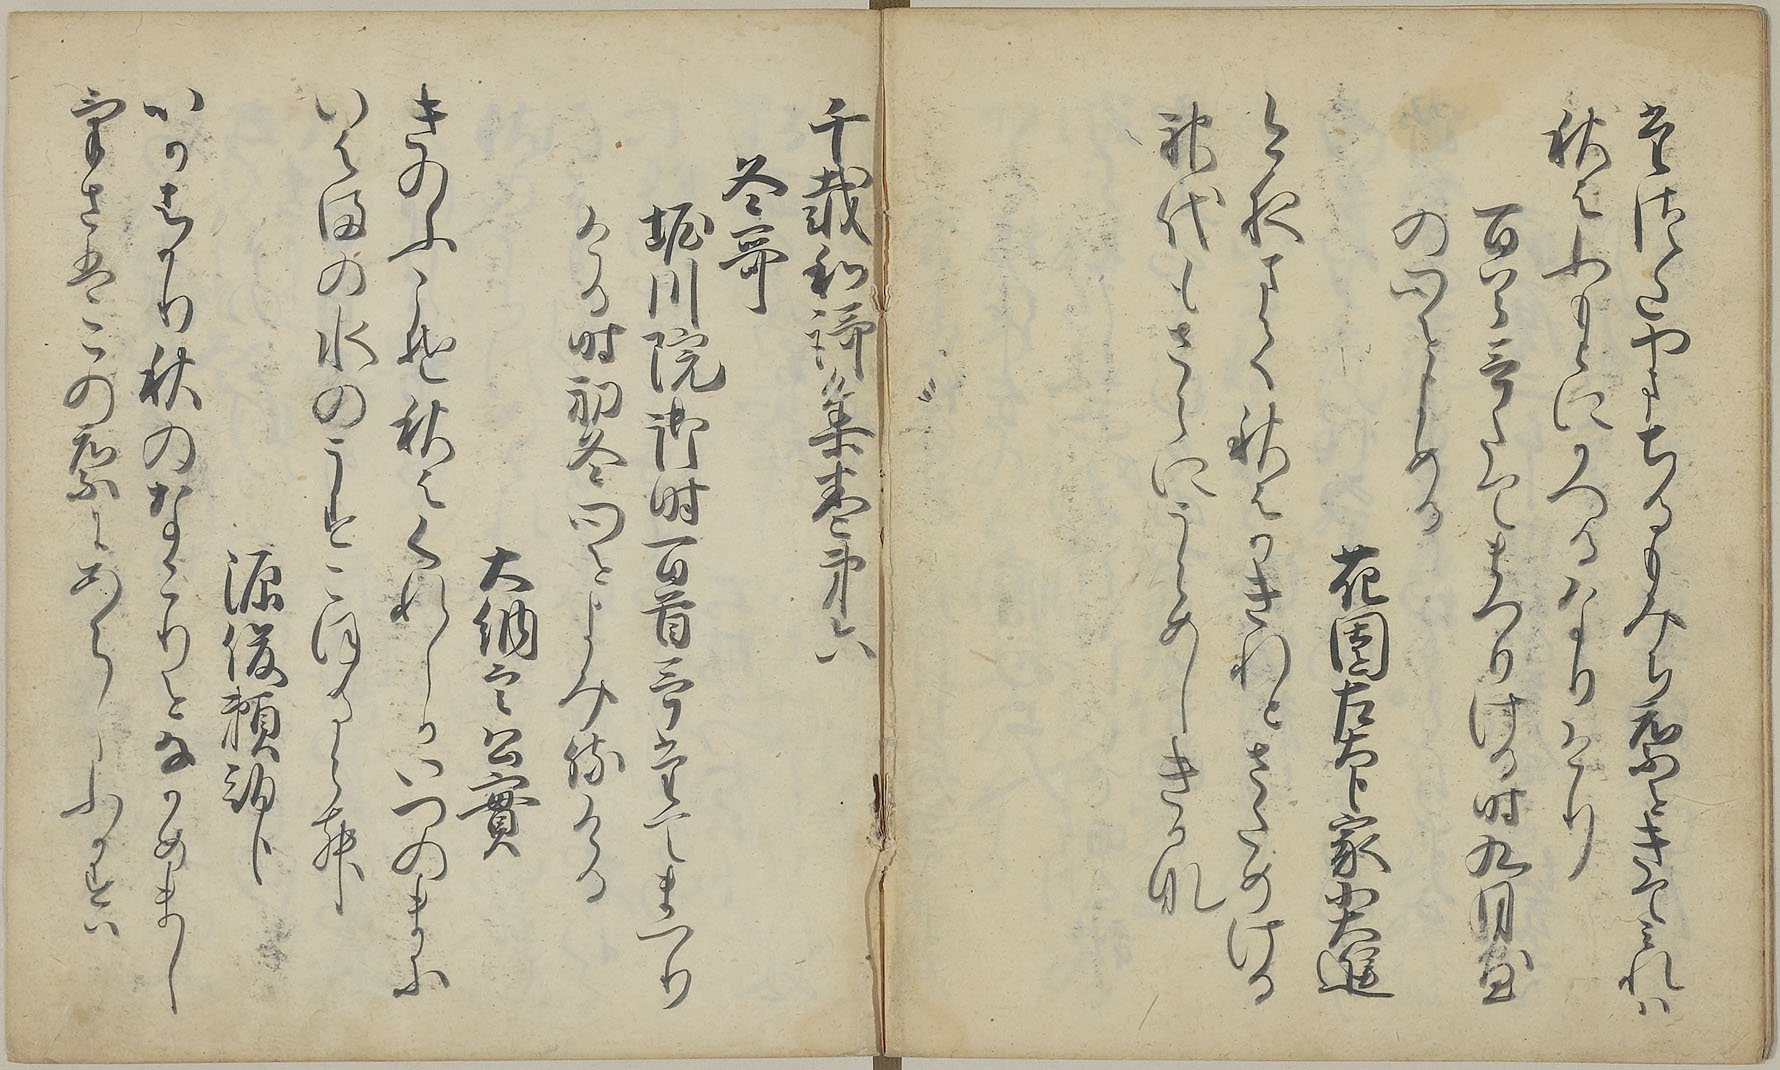 たつたやまちるもみち葉をきてみれは
秋はふもとにかへるなりけり
百首哥たてまつりける時九月尽
の心をよめる
花園左大臣家小大進
今夜まて秋はかきれとさためける
神代もさらにうらめしきかな
千載和謌集巻第六
冬哥
堀川院御時百首哥たてまつり
ける時初冬心をよみ侍ける
大納言公實
きのふこそ秋はくれしかいつのまに
いはまの水のうすこほるらむ
源俊頼朝臣
いかはかり秋のなこりをなかめまし
けさはこの葉にあらしふかすは